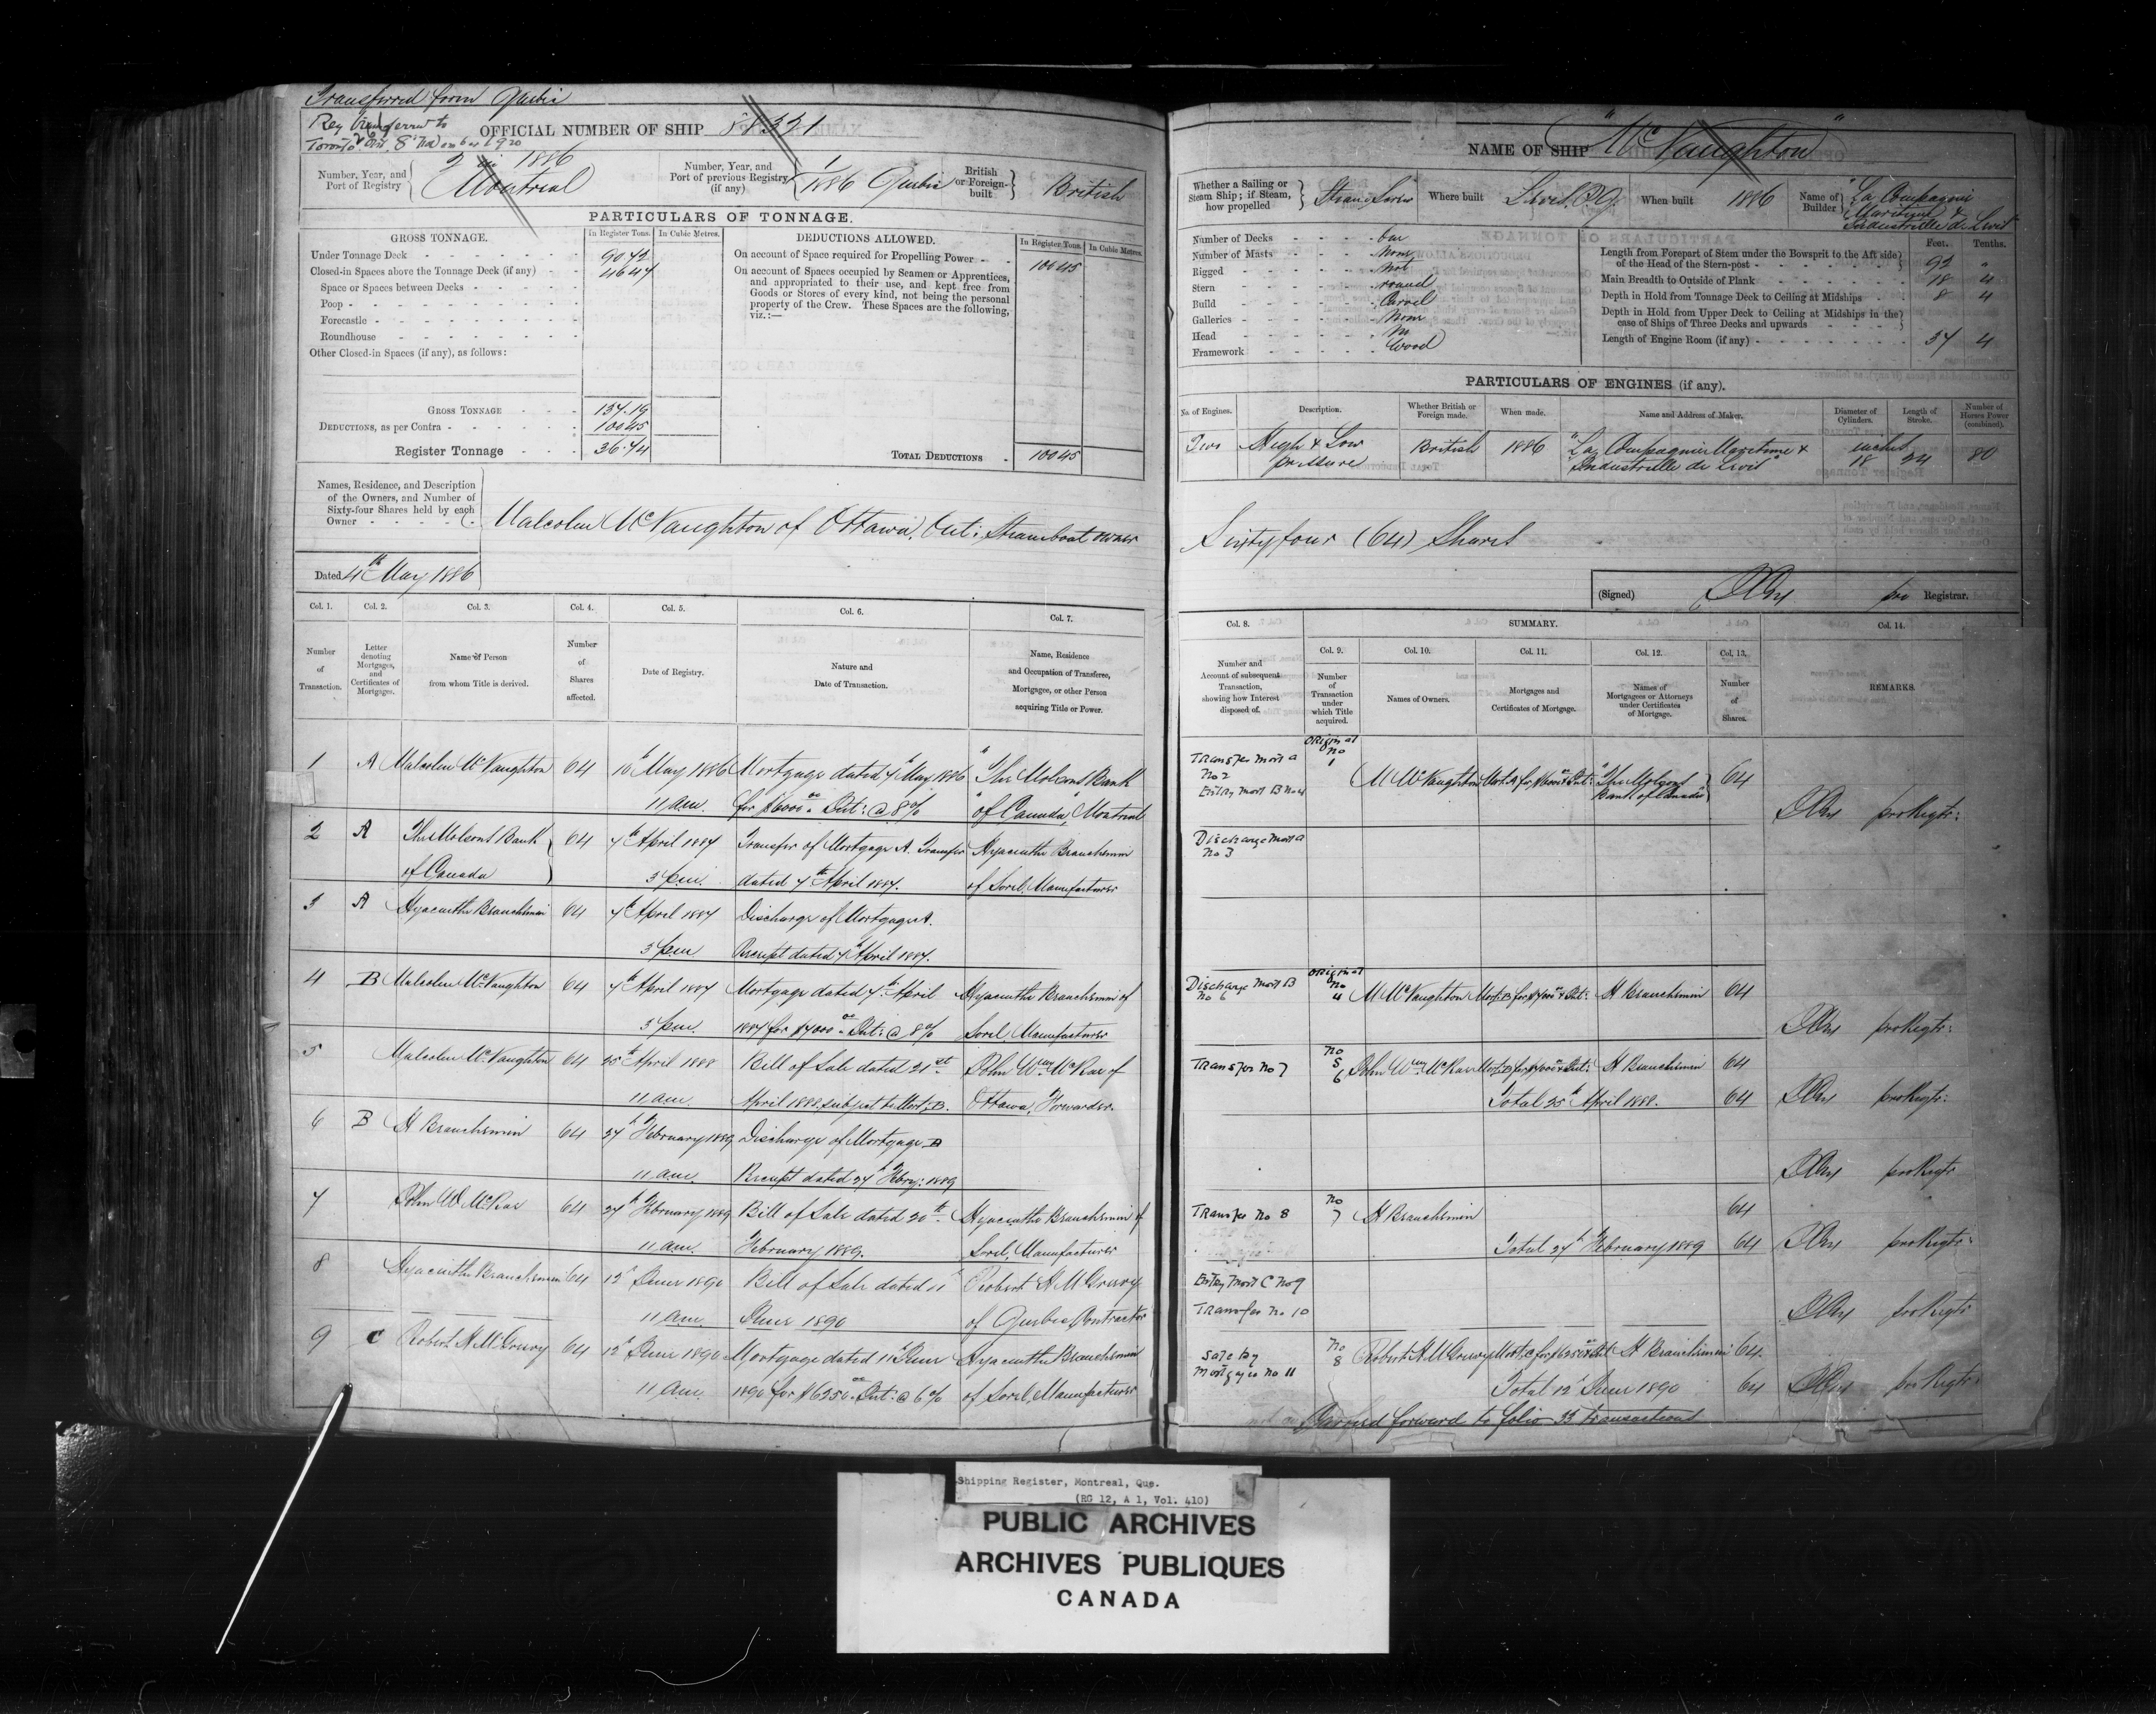 Transferred from Quebec
Reg transferred to
Toronto Ont. 8th November 1920
OFFICIAL NUMBER OF SHIP
Number, Year, and
Port of Registry
2 in 1886
Montreal
Number, Year, and
Port of previous Registry
(if any)
1/1886 Quebec
British
or Foreign-
built
British
PARTICULARS OF TONNAGE.
GROSS TONNAGE.
In Register Tons.
In Cubic Metres.
Under Tonnage Deck
90.72
Closed-in Spaces above the Tonnage Deck (if any)
46.47
Space or Spaces between Decks
Poop
Forecastle
Roundhouse
Other Closed-in Spaces (if any), as follows:
GROSS TONNAGE
137.19
DEDUCTIONS, as per Contra
100.45
Register Tonnage
36.74
DEDUCTIONS ALLOWED.
In Register Tons.
In Cubic Metres.
On account of Space required for Propelling Power
100.45
On account of Spaces occupied by Seamen or Apprentices,
and appropriated to their use, and kept free from
Goods or Stores of every kind, not being the personal
property of the Crew. These Spaces are the following,
viz.:—
TOTAL DEDUCTIONS
100.45
Names, Residence, and Description
of the Owners, and Number of
Sixty-four Shares held by each
Owner
Malcolm McNaughton of Ottawa, Ont: Steamboat owner
Dated 4th May 1886
Col. 1.
Col. 2.
Col. 3.
Col. 4.
Col. 5.
Col. 6.
Col. 7.
Number
of
Transaction.
Letter
denoting
Mortgages,
and
Certificates of
Mortgage.
Name of Person
from whom Title is derived.
Number
of
Shares
affected.
Date of Registry.
Nature and
Date of Transaction.
Name, Residence
and Occupation of Transferee,
Mortgagee, or other Person
acquiring Title or Power.
1 A Malcolm McNaughton 64 10th May 1886 Mortgage dated 7th May 1886 "The Molsons Bank
11 a.m. for $6000.00 Int: @ 8% of Canada", Montreal
2 A The Molsons Bank 64 7th April 1887 Transfer of Mortgage A. Transfer Hyacinthe Beauchemin
of Canada 3 p.m. dated 7th April 1887. of Sorel, Manufacturer
3 A Hyacinthe Beauchemin 64 7th April 1887 Discharge of Mortgage A.
3 p.m. Receipt dated 7th April 1887.
4 B Malcolm McNaughton 64 7th April 1887 Mortgage dated 7th April Hyacinthe Beauchemin of
3 p.m. 1887 for $7000.00 Int: @ 8% Sorel, Manufacturer
5 Malcolm McNaughton 64 25th April 1888 Bill of Sale dated 21st John Wm McRae of
11 a.m. April 1888. subject to Mort: B. Ottawa, Forwarder.
6 B H Beauchemin 64 27th February 1889 Discharge of Mortgage B
11 a.m. Receipt dated 27th Febry: 1889
7 John W McRae 64 27th February 1889 Bill of Sale dated 20th Hyacinthe Beauchemin of
11 a.m. February 1889. Sorel, Manufacturer
8 Hyacinthe Beauchemin 64 12th June 1890 Bill of Sale dated 11th Robert H McGreevy
11 a.m. June 1890 of Quebec, Contractor
9 C Robert H McGreevy 64 12th June 1890 Mortgage dated 11th June Hyacinthe Beauchemin
11 a.m. 1890 for $6250.00 Int: @ 6% of Sorel, Manufacturer
NAME OF SHIP "McNaughton"
Whether a Sailing or
Steam Ship; if Steam,
how propelled
Steam Screw
Where built
Levis P.Q.
When built
1886
Name of
Builder
"La Compagnie
Maritime &
Industrielle de Levis"
Number of Decks
One
Number of Masts
None
Rigged
Not
Stern
round
Build
Carvel
Galleries
None
Head
No
Framework
Wood
Feet.
Tenths.
Length from Forepart of Stem under the Bowsprit to the Aft side
of the Head of the Stern-post
92 "
Main Breadth to Outside of Plank
18 4
Depth in Hold from Tonnage Deck to Ceiling at Midships
8 4
Depth in Hold from Upper Deck to Ceiling at Midships in the
case of Ships of Three Decks and upwards
Length of Engine Room (if any)
37 4
PARTICULARS OF ENGINES (if any).
No. of Engines.
Description.
Whether British or
Foreign made.
When made.
Name and Address of Maker.
Diameter of
Cylinders.
Length of
Stroke.
Number of
Horses Power
(combined).
Two
High & Low
pressure
British
1886
"La Compagnie Maritime &
Industrielle de Levis"
inches
18
24
80
Sixty four (64) Shares
(Signed)
pro Registrar.
Col. 8.
SUMMARY.
Col. 9.
Col. 10.
Col. 11.
Col. 12.
Col. 13.
Col. 14.
Number and
Account of subsequent
Transaction,
showing how Interest
disposed of.
Number
of
Transaction
under
which Title
acquired.
Names of Owners.
Mortgages and
Certificates of Mortgage.
Names of
Mortgagees or Attorneys
under Certificates
of Mortgage.
Number
of
Shares.
REMARKS.
Transfer Mort A
No 2
Entry Mort B No 4
Original
No
1
M McNaughton Mort. A for $6000.00 & Int: "The Molsons
Bank of Canada" 64
pro Regtr:
Discharge Mort A
No 3
Discharge Mort B
No 6
Original
No
4 M McNaughton Mort: B for $7000.00 & Int: H Beauchemin 64
pro Regtr:
Transfer No 7
No
5
6 John Wm McRae Mort: B for $7000.00 & Int: H Beauchemin 64
Total 25th April 1888. 64
pro Regtr:
pro Regtr
Transfer No 8
No
7 H Beauchemin 64
Total 27th February 1889 64
pro Regtr:
Entry Mort C No 9
Transfer No 10
pro Regtr
Sale by
Mortgagee No 11
No
8 Robert H McGreevy Mort: C for $6250.00 & Int H Beauchemin 64
Total 12th June 1890 64
pro Regtr:
Carried forward to folio 33 Transactions
Shipping Register, Montreal, Que.
(RG 12, A 1, Vol. 410)
PUBLIC ARCHIVES
ARCHIVES PUBLIQUES
CANADA